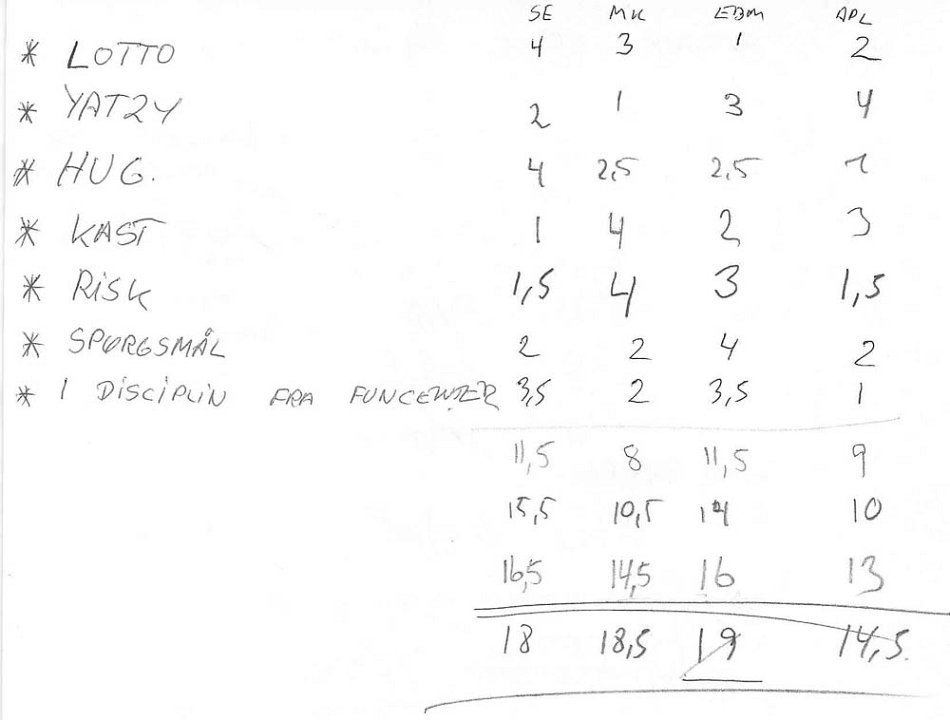 SE MK EBM APL
* LOTTO 4 3 1 2
* YATZY 2 1 3 4
* HUG. 4 2,5 2,5 1
* KAST 1 4 2 3
* RISK 1,5 4 3 1,5
* SPØRGSMÅL 2 2 4 2
* 1 DISCIPLIN FRA FUNCENTER 3,5 2 3,5 1
11,5 8 11,5 9
15,5 10,5 14 10
16,5 14,5 16 13
18 18,5 19 14,5.